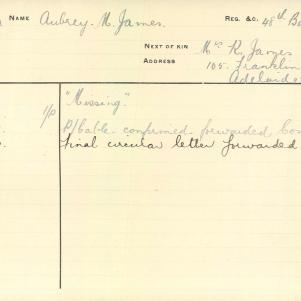 NAME Aubrey. M. James. REG. &C. 48th
NEXT OF KIN Mrs K. James
ADDRESS 105. Franklin
Adelaide
"Missing".
1/0 P/bable. confirmed. forwarded
final circular letter forwarded